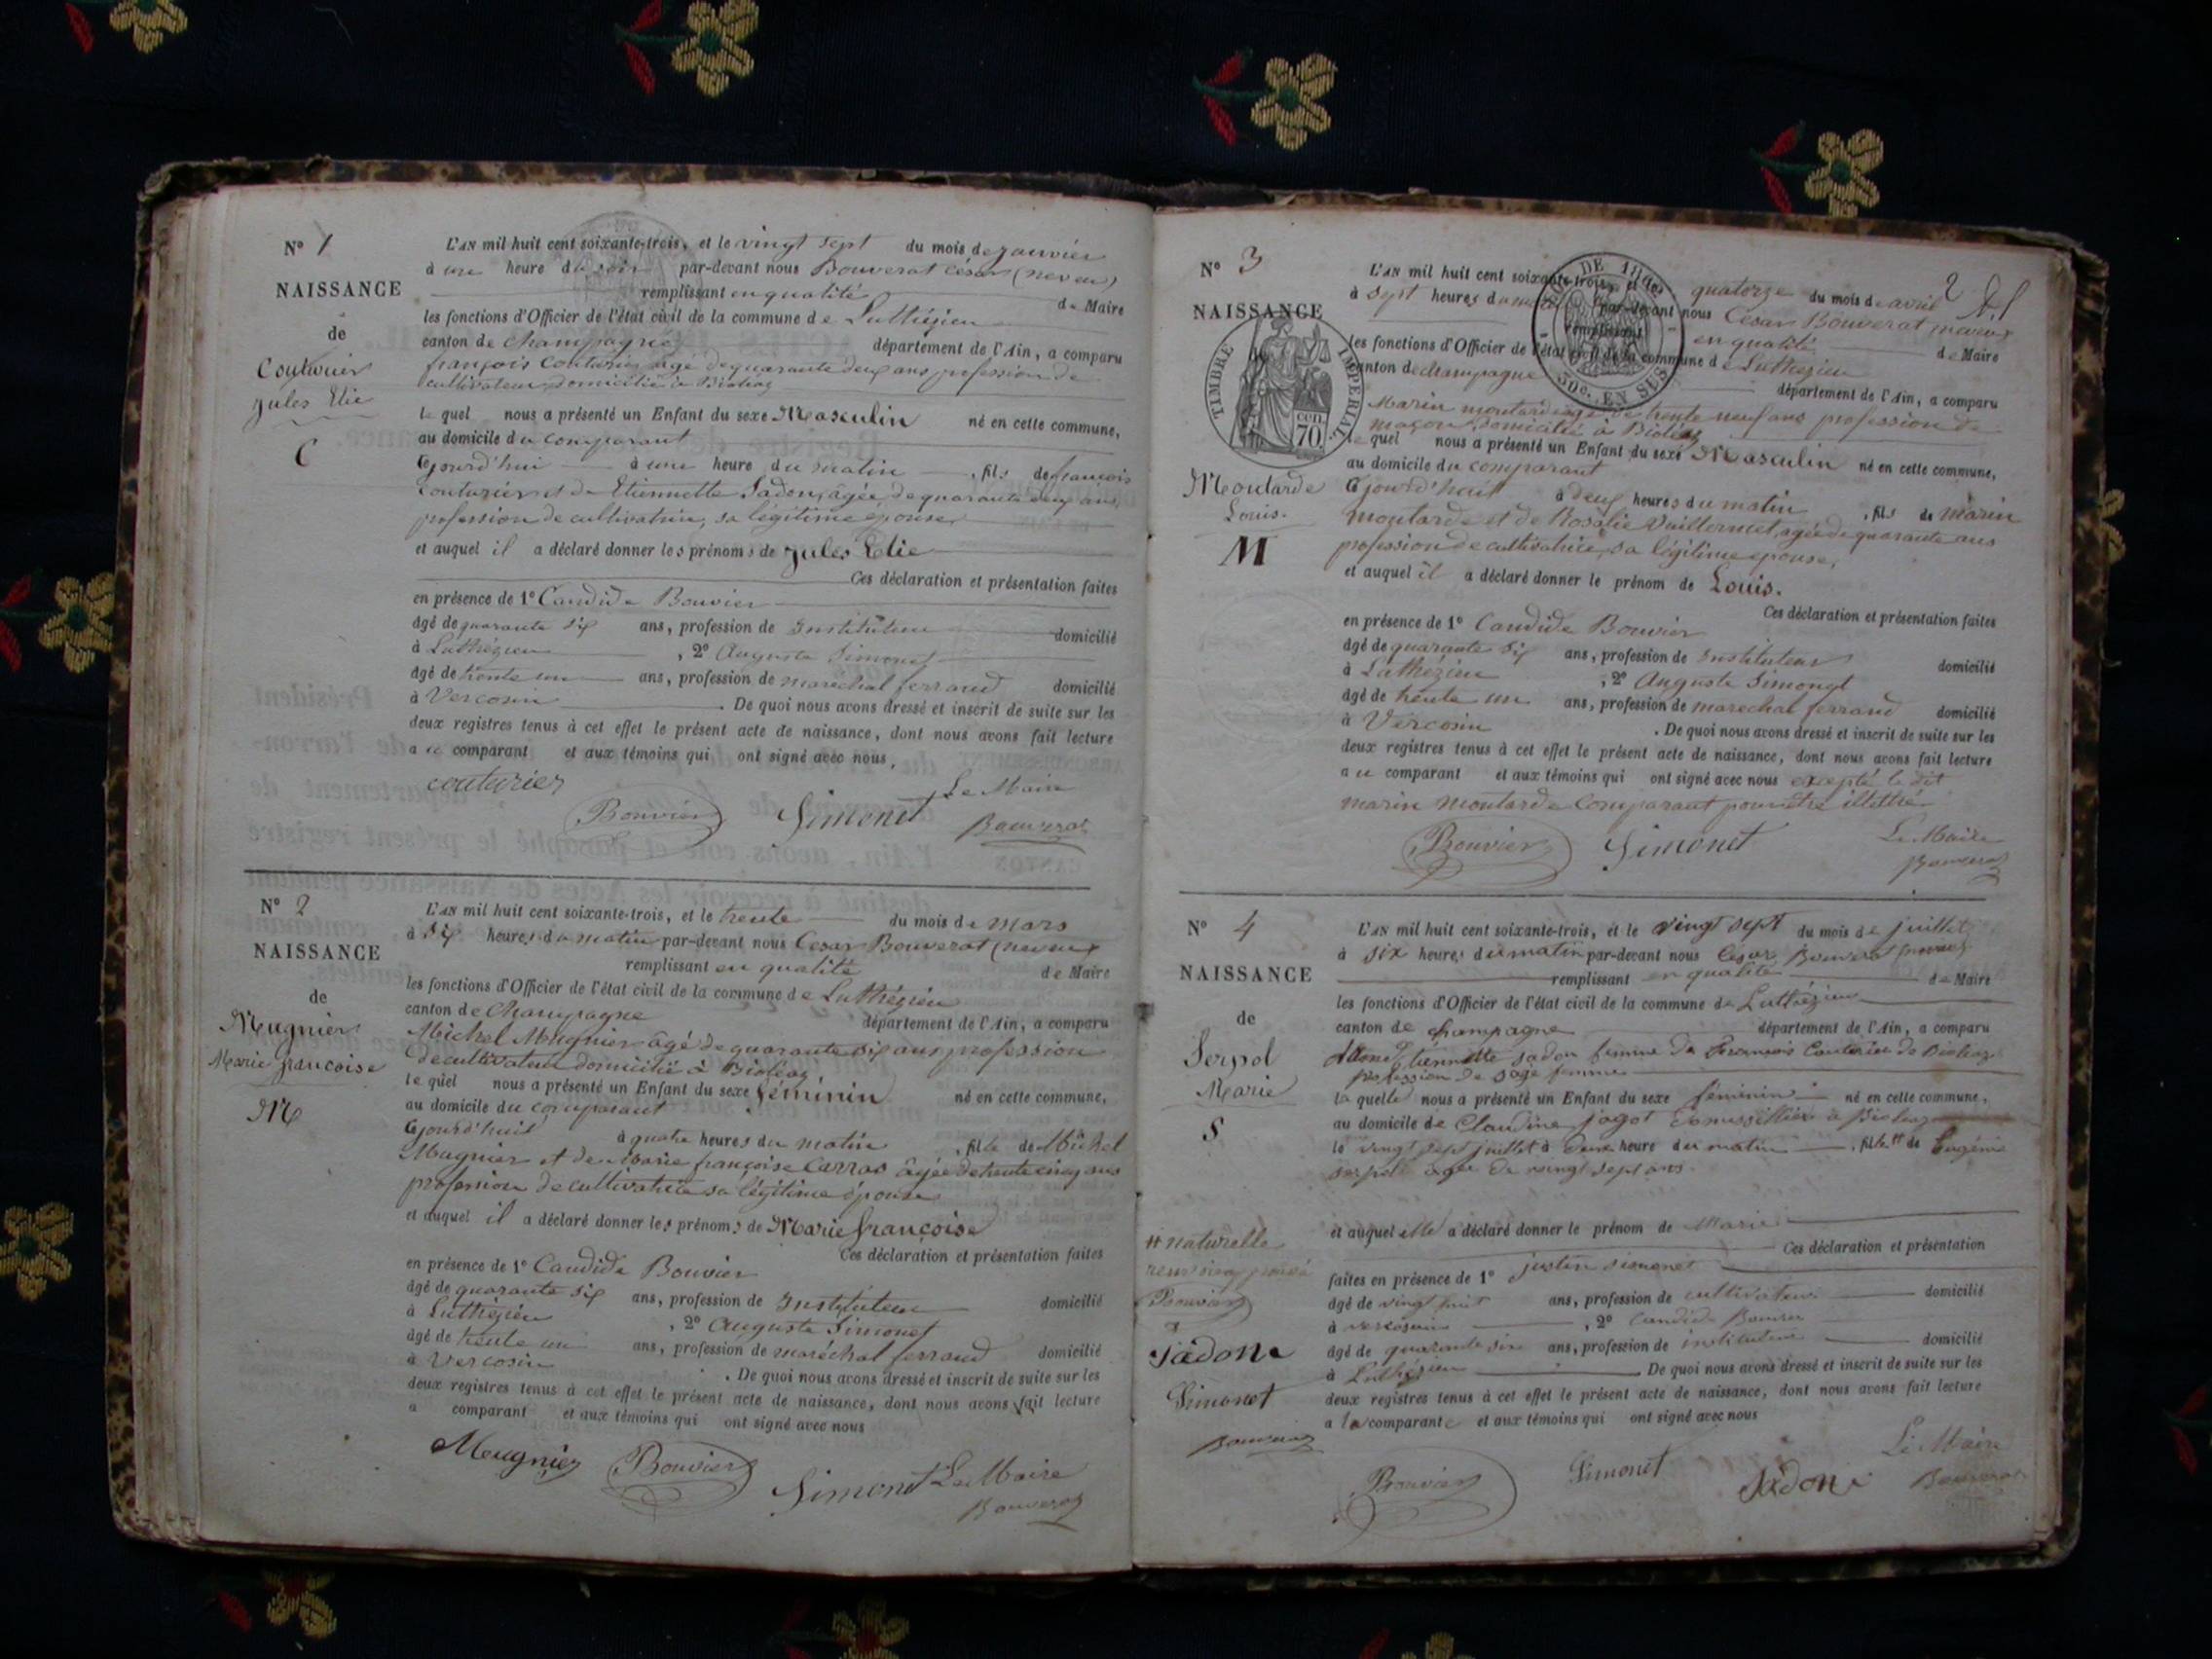 N° 1
NAISSANCE
de
Couturier
Jules Elie
C
L'AN mil huit cent soixante-trois, et le vingt sept du mois de janvier
à une heure du soir par-devant nous Bouverat César (neveu)
remplissant en qualité de Maire
les fonctions d'Officier de l'état civil de la commune de Luthézieu
canton de Champagne département de l'Ain, a comparu
françois Couturier âgé de quarante deux ans profession de
cultivateur domicilié à Bioléaz
le quel nous a présenté un Enfant du sexe Masculin né en cette commune,
au domicile du comparant
Cejourd'hui à une heure du matin, fils de françois
Couturier et de Etiennette Jadon, âgée de quarante deux ans,
profession de cultivatrice, sa légitime épouse
et auquel il a déclaré donner les prénoms de Jules Elie
Ces déclaration et présentation faites
en présence de 1° Candide Bouvier
âgé de quarante six ans, profession de Instituteur domicilié
à Luthézieu, 2° Auguste Simonet
âgé de trente un ans, profession de maréchal ferrand domicilié
à Vercosin. De quoi nous avons dressé et inscrit de suite sur les
deux registres tenus à cet effet le présent acte de naissance, dont nous avons fait lecture
a ce comparant et aux témoins qui ont signé avec nous,
couturier
Bouvier Simonet Le Maire
Bouverat
N° 2
NAISSANCE
de
Mugnier
Marie françoise
M
L'AN mil huit cent soixante-trois, et le trente du mois de Mars
à six heures du matin par-devant nous Cesar Bouverat (neveu)
remplissant en qualité de Maire
les fonctions d'Officier de l'état civil de la commune de Luthézieu
canton de Champagne département de l'Ain, a comparu
Michel Mugnier âgé de quarante six ans profession
de cultivateur domicilié à Bioléaz
le quel nous a présenté un Enfant du sexe féminin né en cette commune,
au domicile du comparant
Cejourd'huit à quatre heures du matin, fille de Michel
Mugnier et de Marie françoise Carrao âgée de trente cinq ans
profession de cultivatrice sa légitime épouse
et auquel il a déclaré donner les prénoms de Marie françoise
Ces déclaration et présentation faites
en présence de 1° Candide Bouvier
âgé de quarante six ans, profession de Instituteur domicilié
à Luthézieu, 2° Auguste Simonet
âgé de trente un ans, profession de maréchal ferrand domicilié
à Vercosin. De quoi nous avons dressé et inscrit de suite sur les
deux registres tenus à cet effet le présent acte de naissance, dont nous avons fait lecture
a comparant et aux témoins qui ont signé avec nous
Meugnier Bouvier Simonet Le Maire
Bouverat
2
N° 3
NAISSANCE
TIMBRE IMPERIAL
cen 70
Moutarde
Louis.
M
DE 1862
50c. EN SUS
L'AN mil huit cent soixante-trois, et quatorze du mois de avril
à sept heures du matin par-devant nous Cesar Bouverat neveux
remplissant en qualité de Maire
les fonctions d'Officier de l'état civil de la commune de Luthézieu
canton de champagne département de l'Ain, a comparu
Marin moutarde âgé de trente neuf ans profession de
maçon domicilié à Bioléaz
le quel nous a présenté un Enfant du sexe Masculin né en cette commune,
au domicile du comparant
Cejourd'huit à deux heures du matin, fils de marin
moutarde et de Rosalie Vuillermet, agée de quarante ans
profession de cultivatrice, sa légitime epouse,
et auquel il a déclaré donner le prénom de Louis.
Ces déclaration et présentation faites
en présence de 1° Candide Bouvier
âgé de quarante six ans, profession de Instituteur domicilié
à Luthézieu, 2° Auguste Simonet
âgé de trente un ans, profession de marechal ferrand domicilié
à Vercosin. De quoi nous avons dressé et inscrit de suite sur les
deux registres tenus à cet effet le présent acte de naissance, dont nous avons fait lecture
a ce comparant et aux témoins qui ont signé avec nous excepté le dit
marin moutarde comparant pour être illettré
Bouvier Simonet Le Maire
Bouverat
N° 4
NAISSANCE
de
Serpol
Marie
S
L'AN mil huit cent soixante-trois, et le vingt sept du mois de juillet
à six heures du matin par-devant nous César Bouverat neveu
remplissant en qualité de Maire
les fonctions d'Officier de l'état civil de la commune de Luthézieu
canton de champagne département de l'Ain, a comparu
Etiennette Jadon femme de François Couturier de Bioléaz
profession de sage femme
la quelle nous a présenté un Enfant du sexe féminin né en cette commune,
au domicile de Claudine jagot à Bioléaz
le vingt sept juillet à deux heure du matin, fille # de Eugénie
serpol agée de vingt sept ans
et auquel elle a déclaré donner le prénom de Marie
Ces déclaration et présentation
faites en présence de 1° justin simonet
âgé de vingt huit ans, profession de cultivateur domicilié
à vercosin, 2° Candide Bouvier
âgé de quarante six ans, profession de instituteur domicilié
à Luthézieu. De quoi nous avons dressé et inscrit de suite sur les
deux registres tenus à cet effet le présent acte de naissance, dont nous avons fait lecture
a la comparante et aux témoins qui ont signé avec nous
# naturelle
renvoi
Bouvier
Jadon
Simonet
Bouverat
Bouvier Simonet Jadon Le Maire
Bouverat